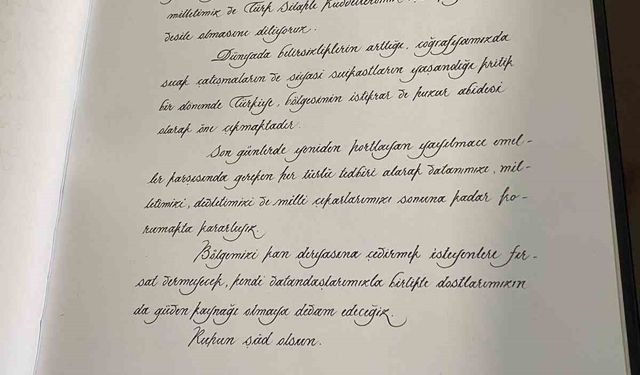 milletimiz ve Türk Silahlı Kuvvetlerimiz
vesile olmasını diliyorum.
Dünyada belirsizliklerin arttığı, coğrafyamızda
sıcak çatışmaların ve siyasi suikastların yaşandığı kritik
bir dönemde Türkiye, bölgesinin istikrar ve huzur abidesi
olarak öne çıkmaktadır.
Son günlerde yeniden hortlayan yayılmacı emel-
ler karşısında gereken her türlü tedbiri alarak vatanımızı, mil-
letimizi, devletimizi ve milli çıkarlarımızı sonuna kadar ko-
rumakta kararlıyız.
Bölgemizi kan deryasına çevirmek isteyenlere fır-
sat vermeyecek, kendi vatandaşlarımızla birlikte dostlarımızın
da güven kaynağı olmaya devam edeceğiz.
Ruhun şâd olsun.